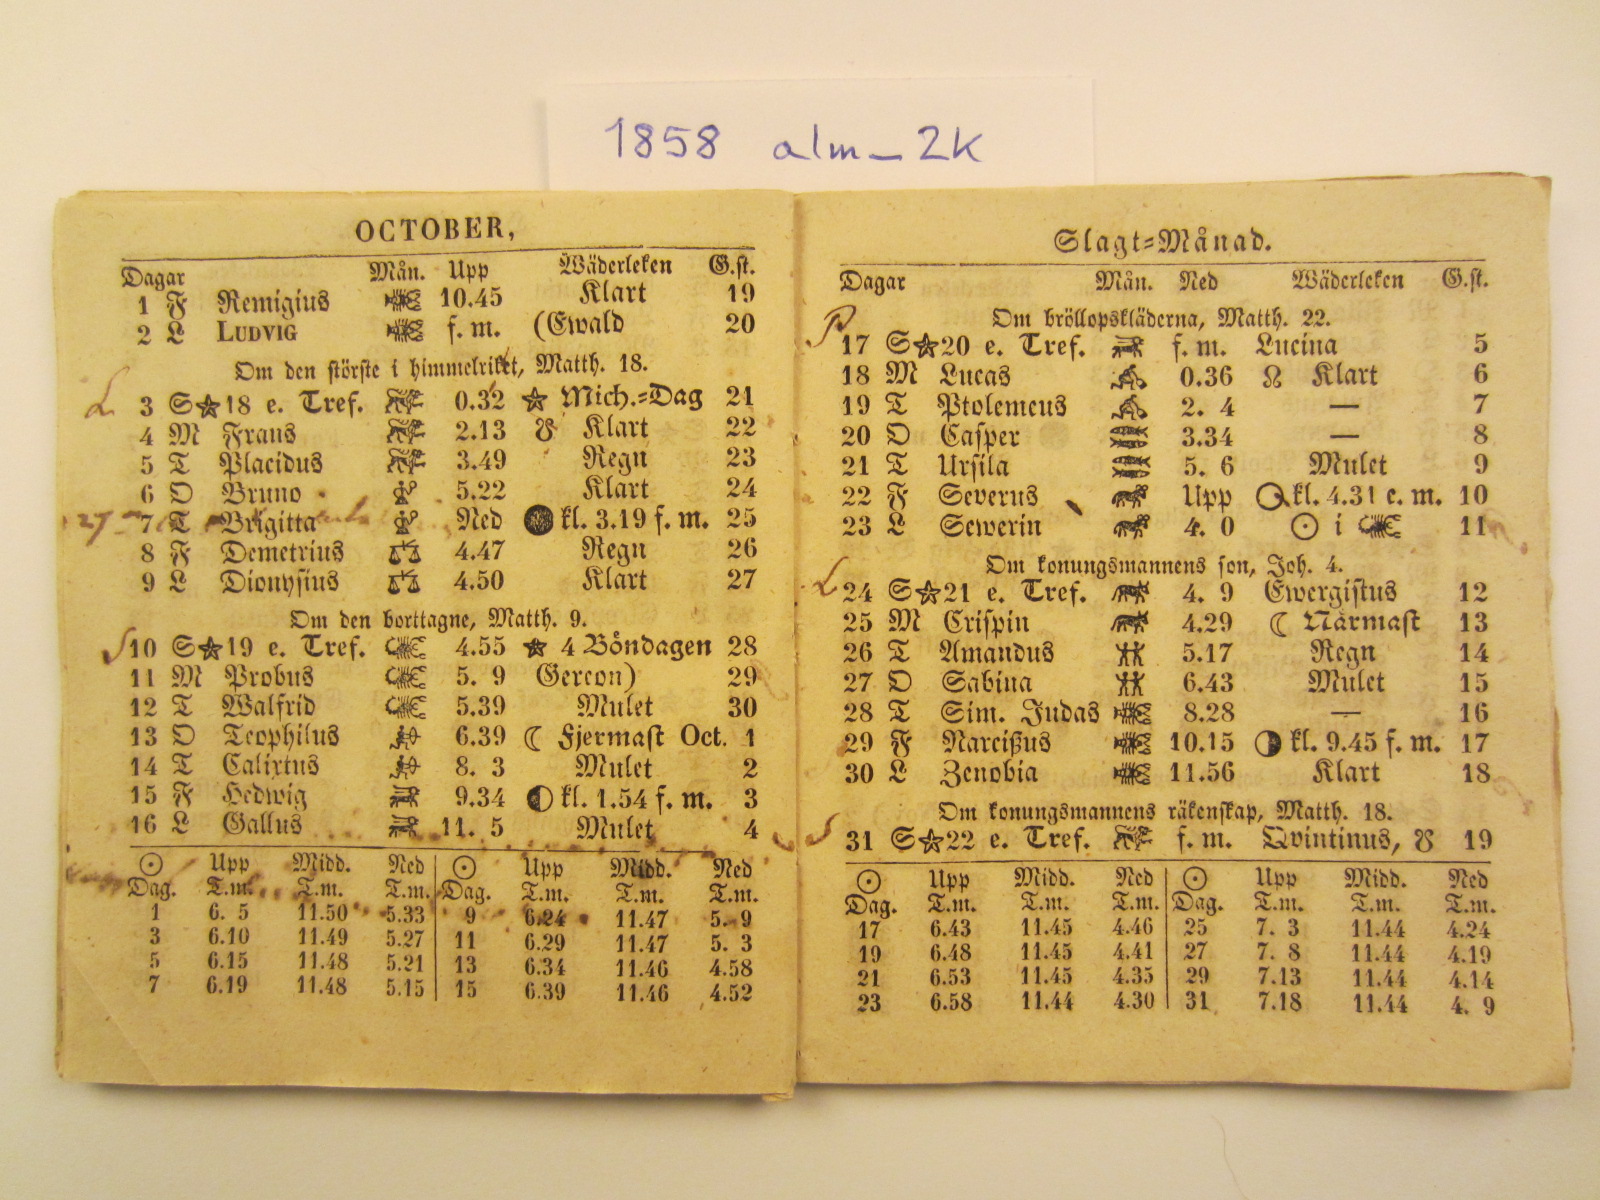 1858 alm_2K
OCTOBER,
Dagar Mån. Upp Wäderleken G.st.
1 F Remigius 10.45 Klart 19
2 L LUDVIG f. m. (Ewald 20
Om den störste i himmelriket, Matth. 18.
L 3 S★18 e. Tref. 0.32 ★ Mich.=Dag 21
4 M Frans 2.13 ☋ Klart 22
5 T Placidus 3.49 Regn 23
6 O Bruno 5.22 Klart 24
27 7 T Brigitta Ned ● kl. 3.19 f. m. 25
8 F Demetrius 4.47 Regn 26
9 L Dionysius 4.50 Klart 27
Om den borttagne, Matth. 9.
S 10 S★19 e. Tref. 4.55 ★ 4 Böndagen 28
11 M Probus 5. 9 Gereon) 29
12 T Walfrid 5.39 Mulet 30
13 O Teophilus 6.39 ☾ Fjermast Oct. 1
14 T Calixtus 8. 3 Mulet 2
15 F Hedwig 9.34 ◐ kl. 1.54 f. m. 3
16 L Gallus 11. 5 Mulet 4
☉ Upp Midd. Ned ☉ Upp Midd. Ned
Dag. T.m. T.m. T.m. Dag. T.m. T.m. T.m.
1 6. 5 11.50 5.33 9 6.24 11.47 5. 9
3 6.10 11.49 5.27 11 6.29 11.47 5. 3
5 6.15 11.48 5.21 13 6.34 11.46 4.58
7 6.19 11.48 5.15 15 6.39 11.46 4.52
Slagt=Månad.
Dagar Mån. Ned Wäderleken G.st.
Om bröllopskläderna, Matth. 22.
P 17 S★20 e. Tref. f. m. Lucina 5
18 M Lucas 0.36 ☊ Klart 6
19 T Ptolemeus 2. 4 — 7
20 O Casper 3.34 — 8
21 T Ursila 5. 6 Mulet 9
22 F Severus Upp ○ kl. 4.31 e. m. 10
23 L Sewerin 4. 0 ☉ i 11
Om konungsmannens son, Joh. 4.
L 24 S★21 e. Tref. 4. 9 Ewergistus 12
25 M Crispin 4.29 ☾ Närmast 13
26 T Amandus 5.17 Regn 14
27 O Sabina 6.43 Mulet 15
28 T Sim. Judas 8.28 — 16
29 F Narcißus 10.15 ◑ kl. 9.45 f. m. 17
30 L Zenobia 11.56 Klart 18
Om konungsmannens räkenskap, Matth. 18.
S 31 S★22 e. Tref. f. m. Qvintinus, ☋ 19
☉ Upp Midd. Ned ☉ Upp Midd. Ned
Dag. T.m. T.m. T.m. Dag. T.m. T.m. T.m.
17 6.43 11.45 4.46 25 7. 3 11.44 4.24
19 6.48 11.45 4.41 27 7. 8 11.44 4.19
21 6.53 11.45 4.35 29 7.13 11.44 4.14
23 6.58 11.44 4.30 31 7.18 11.44 4. 9